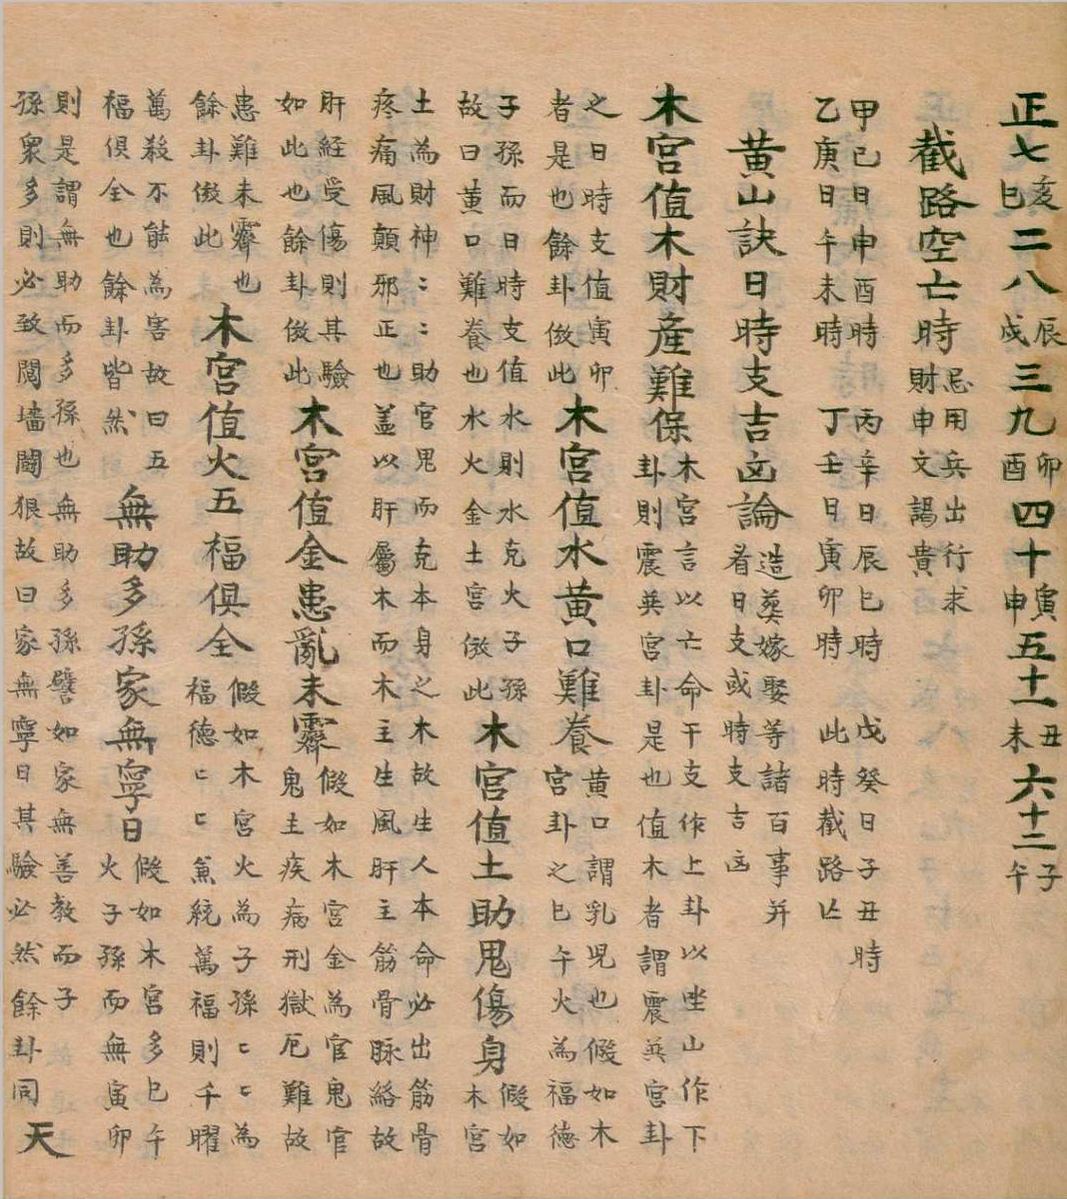 正七亥巳二八辰戌三九卯酉四十寅申五十一丑未六十二子午
截路空亡時忌用兵出行求財申文謁貴
甲己日申酉時 丙辛日辰巳時 戊癸日子丑時
乙庚日午未時 丁壬日寅卯時 此時截路亡
黃山訣日時支吉凶論造葬嫁娶等諸百事并看日支或時支吉凶
木宮值木財產難保木宮言以亡命干支作上卦以坐山作下卦則震巽宮卦是也值木者謂震巽宮卦
之日時支值寅卯者是也餘卦倣此木宮值水黃口難養黃口謂乳児也假如木宮卦之巳午火為福德
子孫而日時支值水則水克火子孫故曰黃口難養也水火金土宮倣此木宮值土助鬼傷身假如木宮
土為財神〻〻助官鬼而克本身之木故生人本命必出筋骨疼痛風顛邪正也盖以肝屬木而木主生風肝主筋骨脉絡故
肝経受傷則其驗如此也餘卦倣此木宮值金患亂未霽假如木宮金為官鬼官鬼主疾病刑獄厄難故
患難未霽也餘卦倣此木宮值火五福俱全假如木宮火為子孫〻〻為福德〻〻兼統萬福則千曜
萬殺不能為害故曰五福俱全也餘卦皆然無助多孫家無寧日假如木宮多巳午火子孫而無寅卯
則是謂無助而多孫也無助多孫譬如家無善教而子孫衆多則必致鬩墻鬪狠故曰家無寧日其驗必然餘卦同天